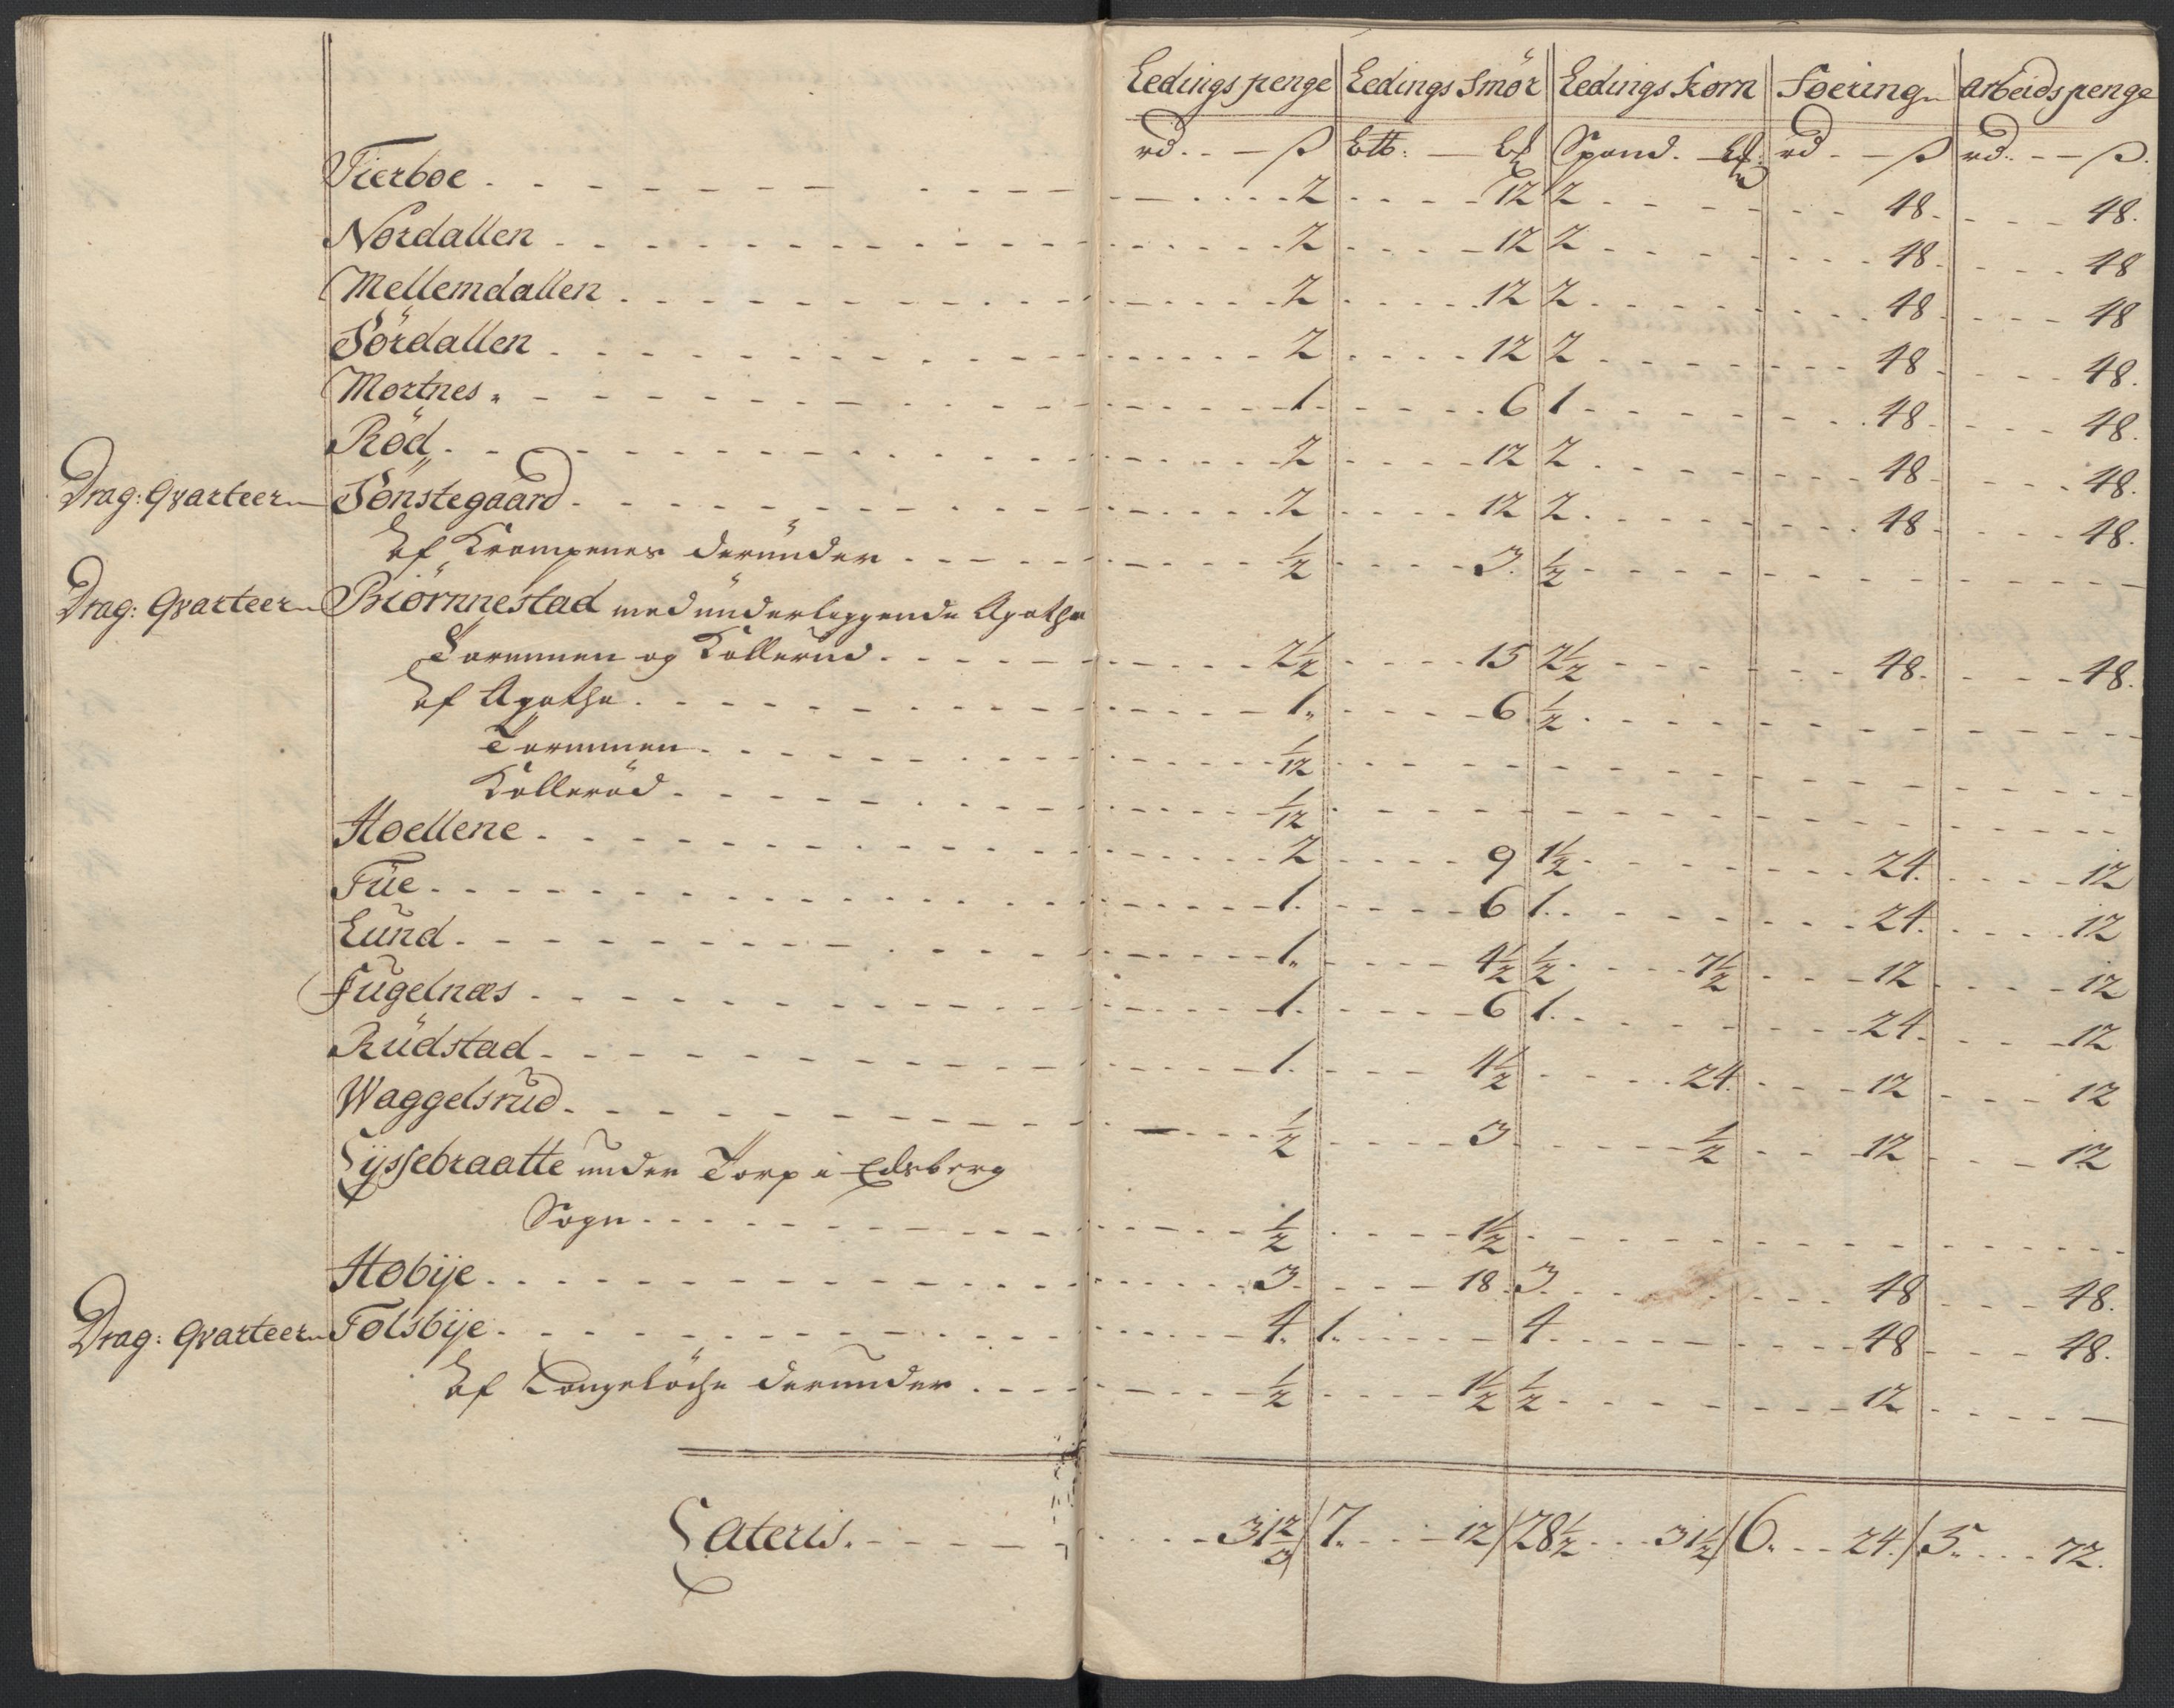 Ledings penge Ledings Smör Ledings Korn Foering Arbeids penge
rd. ß Ltb: L℔ Spand. L℔ rd ß rd. ß.
Fierboe 2 12 2 48. 48.
Nordallen 2 12 2 48. 48
Mellemdallen 2 12 2 48 48
Sördallen 2 12 2 48 48.
Mortnes 1. 6 1 48 48.
Röd 2 12 2 48 48.
Drag: Qvarteer Sönstegaard 2 12 2. 48 48.
Af Krompenes derunder ½ 3. ½
Drag: Qvarteer Biörnnestad med underliggende Apothe
Tormmen og Kollerud 2½ 15 2½ 48. 48.
Af Apothe 1. 6 ½
Tormmen 1/12
Kolleröd 1/12
Hoellene 2 9 1½ 24. 12
Tüe 1. 6 1. 24. 12
Lund 1. 4½ ½ 7½ 12 12
Fugelnæs 1. 6 1. 24. 12
Rüdstad 1. 4½ 24. 12 12
Waggelsrud ½ 3 ½ 12 12
Lyssebraatte under Torp i Edsberg
Sogn ½ 1½
Hobÿe 3. 18 3 48 48.
Drag: Qvarteer Tolsbÿe 4. 1. 4 48 48.
Af derunder ½ 1½ ½ 12
Lateris. 31⅔ 7. 12 28½ 31½ 6. 24. 5. 72.